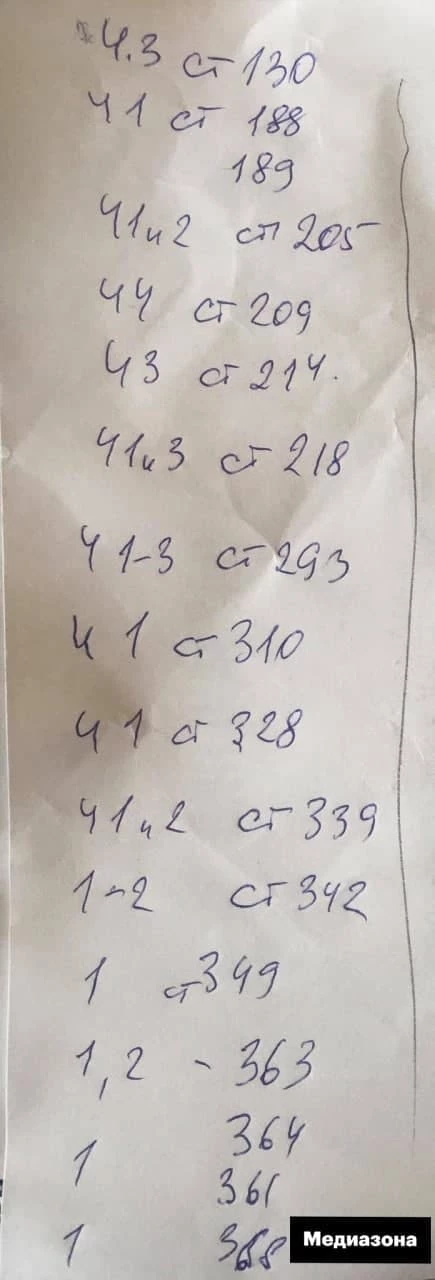 ч.3 ст 130
ч 1 ст 188
189
ч1и2 ст 205
ч4 ст 209
ч3 ст 214.
ч1и3 ст 218
ч 1-3 ст 293
ч 1 ст 310
ч 1 ст 328
ч1и2 ст 339
1-2 ст 342
1 ст 349
1,2 - 363
364
1
361
1 368
Медиазона